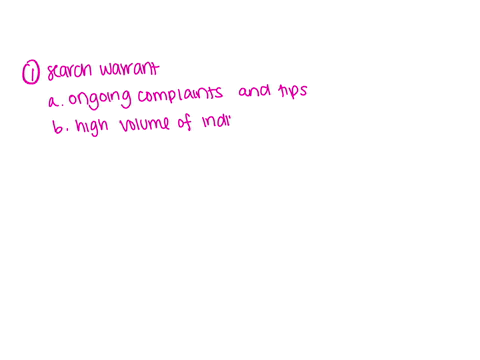 ① search warrant
a. ongoing complaints and tips
b. high volume of indi